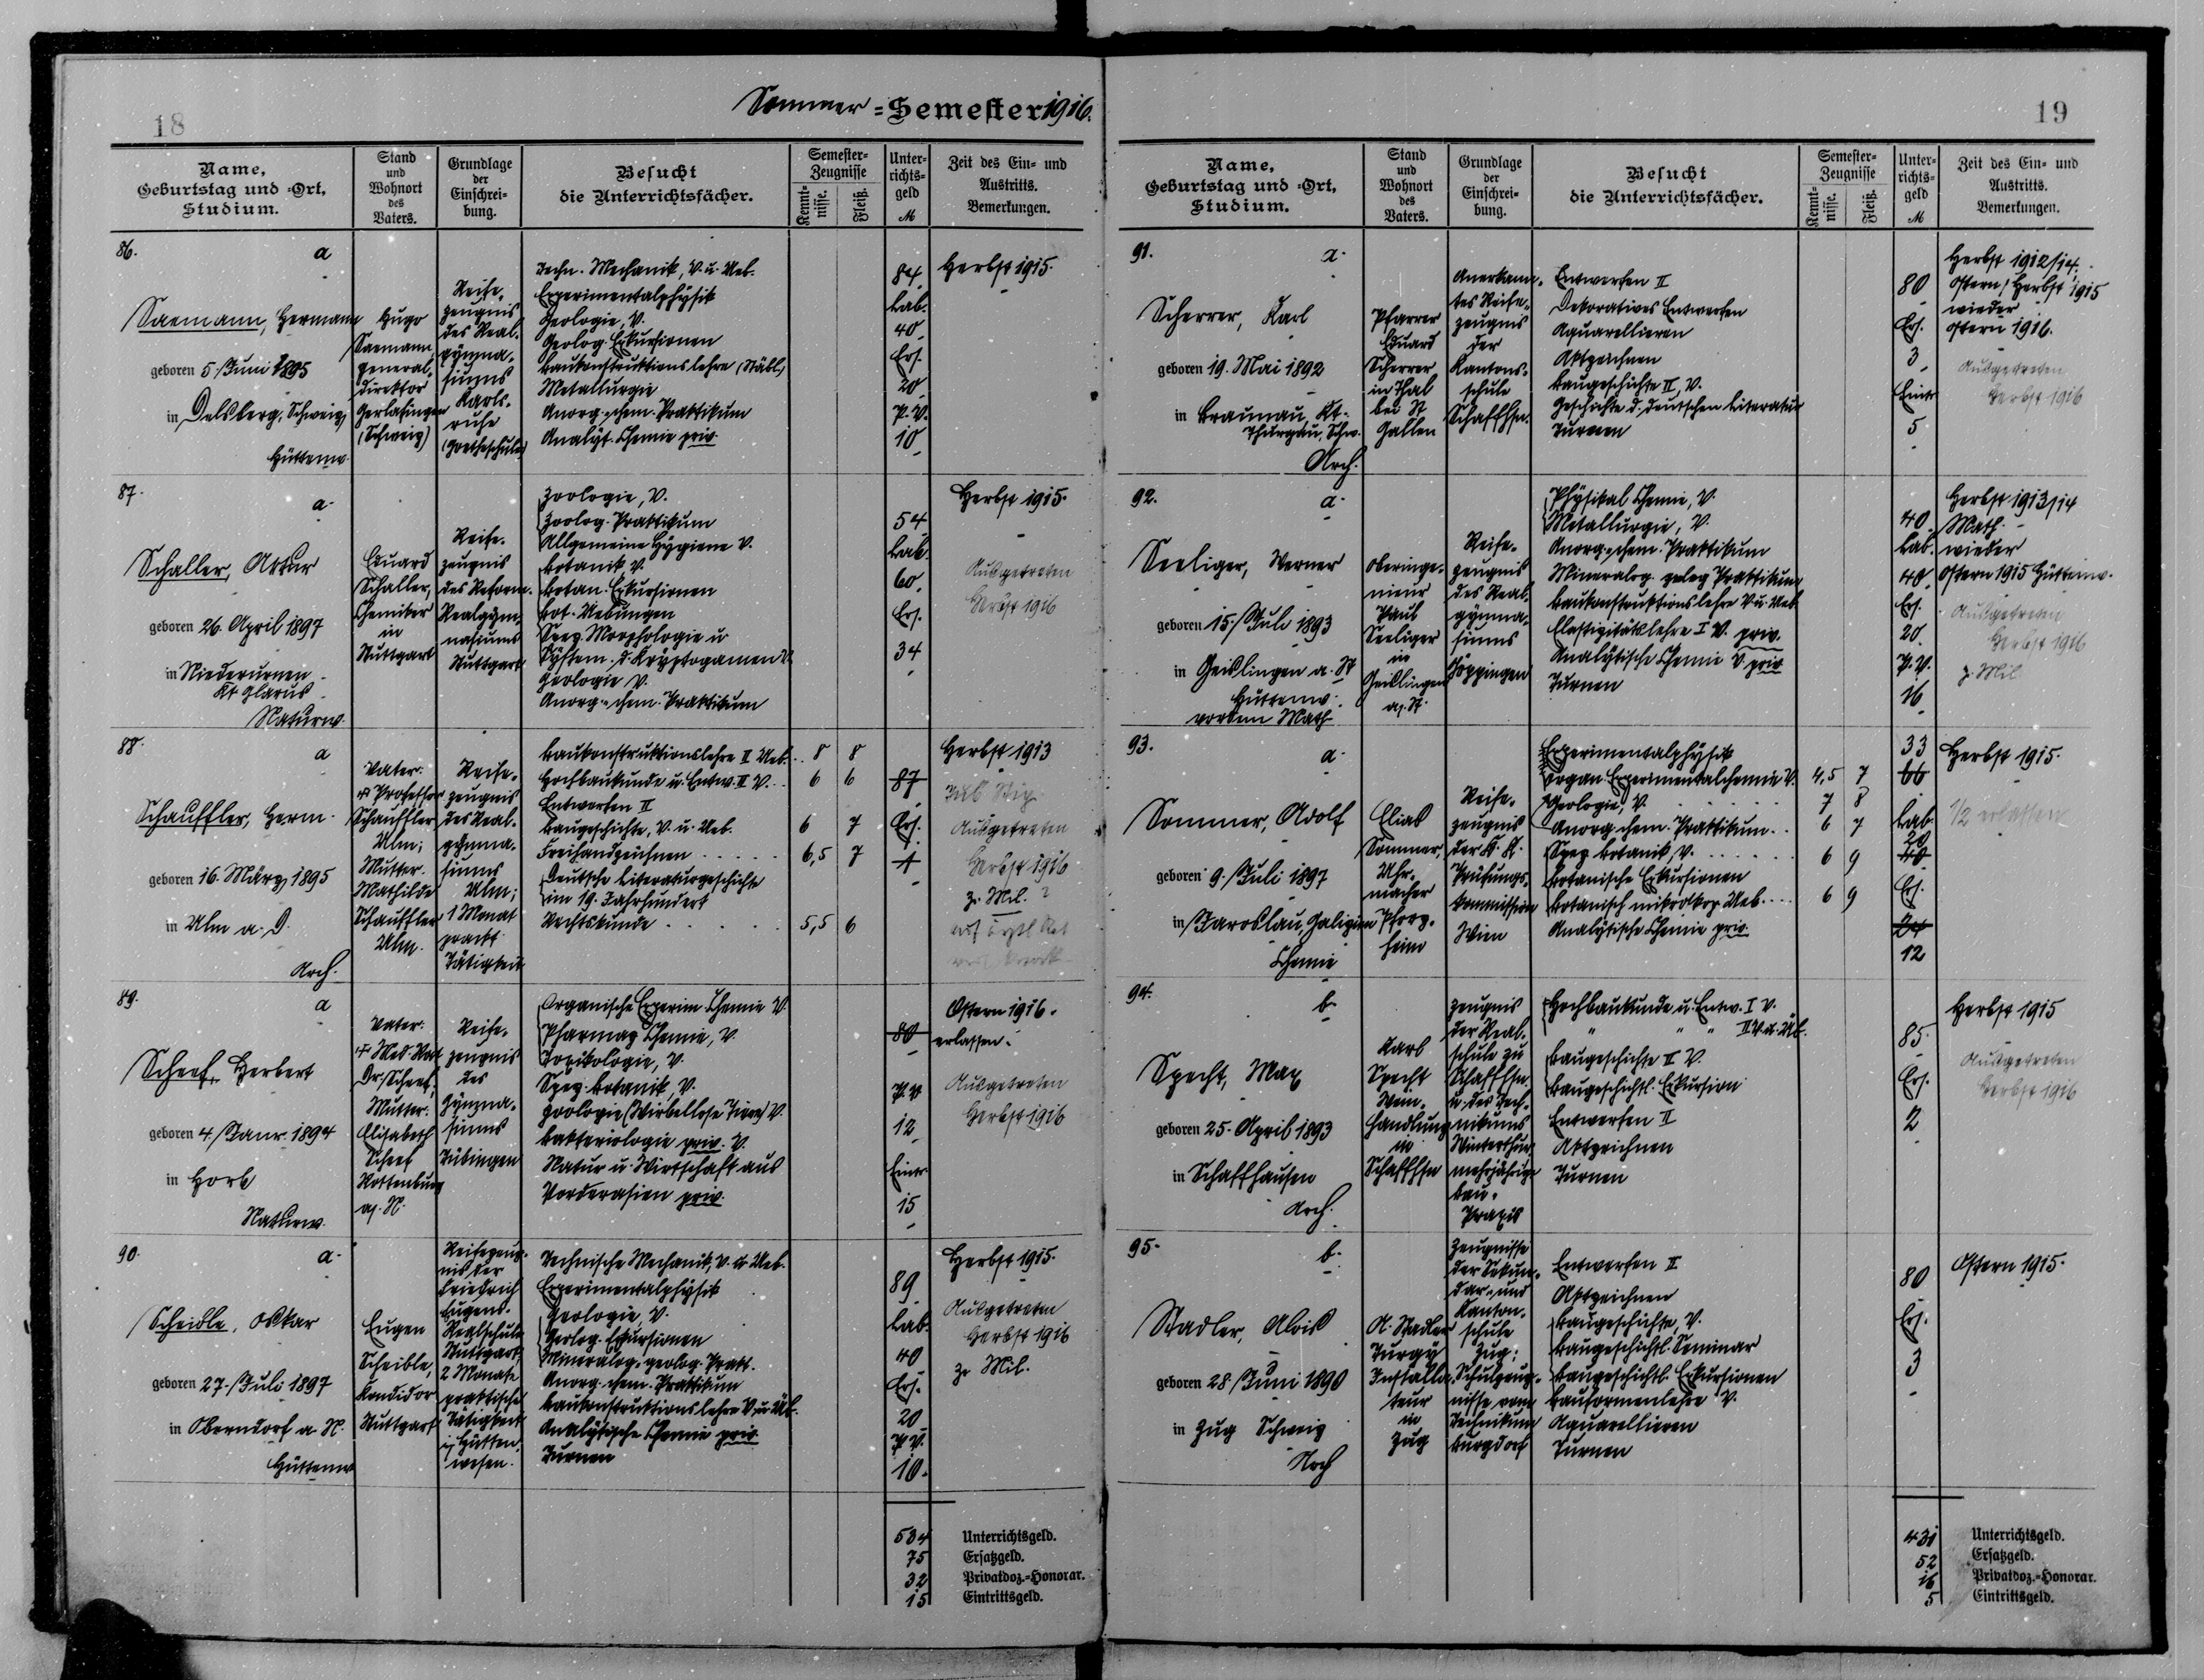 Sommer-Semester 1916.
18
Name, Geburtstag und -Ort, Studium.
Stand und Wohnort des Vaters.
Grundlage der Einschreibung.
Besucht die Unterrichtsfächer.
Semester-Zeugnisse
Kenntnisse.
Fleiß.
Unterrichtsgeld M
Zeit des Ein- und Austritts. Bemerkungen.
86.
a
Saemann, Hermann
geboren 5. Juni 1895
in Delsberg, Schweiz
Hüttenw.
Hugo
Saemann,
General-
direktor
Gerlafingen
(Schweiz)
Reife-
zeugnis
des Real-
gymna-
siums
Karls-
ruhe
(Goetheschule)
Techn. Mechanik, V. u. Ueb.
Experimentalphysik
Geologie, V.
Geolog. Exkursionen
Baukonstruktionslehre (Stäbl.)
Metallurgie
Anorg.-chem. Praktikum
Analyt. Chemie priv.
84
Lab.
40
Ers.
20
P. V.
10
Herbst 1915.
87.
a.
Schaller, Artur
geboren 26. April 1897
in Niederurnen
Kt. Glarus
Naturw.
Eduard
Schaller,
Chemiker
in
Stuttgart
Reife-
zeugnis
des Reform-
Realgym-
nasiums
Stuttgart
Zoologie, V.
Zoolog. Praktikum
Allgemeine Hygiene V.
Botanik V.
Botan. Exkursionen
Bot. Uebungen
Spez. Morphologie u.
System. d. Kryptogamen V.
Geologie V.
Anorg.-chem. Praktikum
54
Lab.
60.
Ers.
34
Herbst 1915.
Ausgetreten
Herbst 1916
88.
a
Schauffler, Herm.
geboren 16. März 1895
in Ulm a. D.
Arch.
Vater:
† Professor
Schauffler
Ulm;
Mutter:
Mathilde
Schauffler
Ulm.
Reife-
zeugnis
des Real-
gymna-
siums
Ulm;
1 Monat
prakt.
Tätigkeit
Baukonstruktionslehre II Ueb. . 8 8
Hochbaukunde u. Entw. II V. . . 6 6
Entwerfen II
Baugeschichte, V. u. Ueb. 6 7
Freihandzeichnen . . . . . 6,5 7
Deutsche Literaturgeschichte
im 19. Jahrhundert
Rechtskunde . . . . . . 5,5 6
87
Ers.
1
Herbst 1913
Ausgetreten
Herbst 1916
z. Mil. ?
89.
a
Scheef, Herbert
geboren 4. Janr. 1894
in Horb
Naturw.
Vater:
† Med. Rat
Dr. Scheef,
Mutter:
Elisabeth
Scheef
Rottenburg
a. N.
Reife-
zeugnis
des
Gymna-
siums
Tübingen
Organische Experim. Chemie V.
Pharmaz. Chemie, V.
Toxikologie, V.
Spez. Botanik, V.
Zoologie (Wirbellose Tiere) V.
Bakteriologie priv. V.
Natur u. Wirtschaft aus
Vorderasien priv.
80
P. V.
12
Eintr.
15
Ostern 1916.
erlassen.
Ausgetreten
Herbst 1916
90.
a.
Scheible, Oskar
geboren 27. Juli 1897
in Oberndorf a. N.
Hüttenw.
Eugen
Scheible,
Konditor
Stuttgart
Reifezeug-
nis der
Friedrich
Eugens-
Realschule
Stuttgart;
2 Monate
praktische
Tätigkeit
i. Hütten-
wesen.
Technische Mechanik, V. u. Ueb.
Experimentalphysik
Geologie, V.
Geolog. Exkursionen
Mineralog.-geolog. Prakt.
Anorg.-chem. Praktikum
Baukonstruktionslehre V. u. Üb.
Analytische Chemie priv.
Turnen
89
Lab.
40
Ers.
20
P. V.
10.
Herbst 1915.
Ausgetreten
Herbst 1916
z. Mil.
534 Unterrichtsgeld.
75 Ersatzgeld.
32 Privatdoz.-Honorar.
15 Eintrittsgeld.
19
Name, Geburtstag und -Ort, Studium.
Stand und Wohnort des Vaters.
Grundlage der Einschreibung.
Besucht die Unterrichtsfächer.
Semester-Zeugnisse
Kenntnisse.
Fleiß.
Unterrichtsgeld M
Zeit des Ein- und Austritts. Bemerkungen.
91.
a.
Scherrer, Karl
geboren 19. Mai 1892
in Braunau, Kt.
Thurgau, Schw.
Arch.
Pfarrer
Eduard
Scherrer
in Thal
bei St.
Gallen
Anerkann-
tes Reife-
zeugnis
der
Kantons-
schule
Schaffhsn.
Entwerfen II
Dekoratives Entwerfen
Aquarellieren
Aktzeichnen
Baugeschichte II, V.
Geschichte d. deutschen Literatur
Turnen
80
Ers.
3
Eintr.
5
Herbst 1912/14.
Ostern/Herbst 1915
wieder
Ostern 1916.
Ausgetreten
Herbst 1916
92.
a.
Seeliger, Werner
geboren 15. Juli 1893
in Geislingen a. St.
Hüttenw.
vordem Math.
Oberinge-
nieur
Paul
Seeliger
in
Geislingen
a. St.
Reife-
zeugnis
des Real-
gymna-
siums
Göppingen
Physikal. Chemie, V.
Metallurgie, V.
Anorg.-chem. Praktikum
Mineralog. geolog. Praktikum
Baukonstruktionslehre V. u. Ueb.
Elastizitätslehre I V. priv.
Analytische Chemie V. priv.
Turnen
40
Lab.
40
Ers.
20.
P. V.
16
Herbst 1913/14
Math.
wieder
Ostern 1915 Hüttenw.
Ausgetreten
Herbst 1916
z. Mil.
93.
a.
Sommer, Adolf
geboren 9. Juli 1897
in Jaroslau, Galizien
Chemie
Elias
Sommer,
Uhr-
macher
Pforz-
heim
Reife-
zeugnis
der K. K.
Prüfungs-
kommission
Wien
Experimentalphysik
organ. Experimentalchemie V. 4,5 7
Geologie, V. . . . . . . 7 8
Anorg.-chem. Praktikum . . 6 7
Spez. Botanik, V. . . . . . . 6 9
Botanische Exkursionen
Botanisch mikroskop. Ueb. . . . 6 9
Analytische Chemie priv.
33
66
Lab.
20
40
Ers.
24
12
Herbst 1915.
1/2 erlassen
94.
b.
Specht, Max
geboren 25. April 1893
in Schaffhausen
Arch.
Karl
Specht
Wein-
handlung
in
Schaffhsn
Zeugnis
der Real-
schule zu
Schaffhsn.
u. des Tech-
nikums
Winterthur
mehrjährige
Bau-
Praxis
Hochbaukunde u. Entw. I V.
" " " II V. u. Üb.
Baugeschichte II V.
Baugeschichtl. Exkursion
Entwerfen II
Aktzeichnen
Turnen
85.
Ers.
2
Herbst 1915
Ausgetreten
Herbst 1916
95.
b.
Stadler, Alois
geboren 28. Juni 1890
in Zug Schweiz
Arch
A. Stadler
Installa-
teur
in
Zug
Zeugnisse
der Sekun-
dar- und
Kanton-
schule
Zug;
Schulzeug-
nisse vom
Technikum
Burgdorf
Entwerfen II
Aktzeichnen
Baugeschichte, V.
Baugeschichtl. Seminar
Baugeschichtl. Exkursionen
Bauformenlehre V.
Aquarellieren
Turnen
80
Ers.
3
Ostern 1915.
431 Unterrichtsgeld.
52 Ersatzgeld.
16 Privatdoz.-Honorar.
5 Eintrittsgeld.